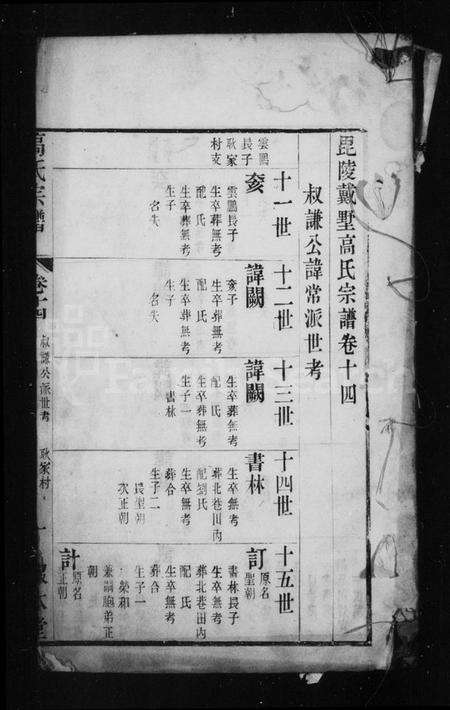 毘陵戴墅高氏宗譜卷十四
叔謙公諱常派世考
十一世
十二世
十三世
十四世
十五世
雲鵬
長子
耿家
村支
雲鵬長子
生卒葬無考
配 氏
生卒葬無考
生子
名失
諱闕
生卒葬無考
配 氏
生卒葬無考
生子
名失
諱闕
生卒葬無考
配 氏
生卒葬無考
生子一
書林
書林
生卒無考
葬北巷田內
配劉氏
生卒無考
葬合
生子二
長聖朝
次正朝
訂
原名
聖朝
書林長子
生卒無考
葬北巷田內
配 氏
生卒無考
葬合
生子一
榮和
兼祧胞弟正
朝
計
原名
正朝
高氏宗譜
卷十四
叔謙公派世考
耿家村
一